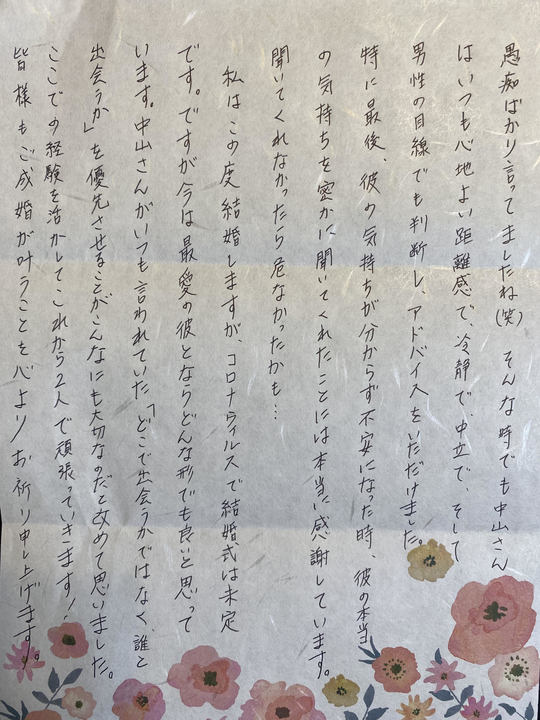 愚痴ばかり言ってましたね(笑) そんな時でも中山さん
はいつも心地よい距離感で、冷静で、中立で、そして
男性の目線でも判断し、アドバイスをいただけました。
特に最後、彼の気持ちが分からず不安になった時、彼の本当
の気持ちを密かに聞いてくれたことには本当に感謝しています。
聞いてくれなかったら危なかったかも…
私はこの度結婚しますが、コロナウィルスで結婚式は未定
です。ですが今は最愛の彼とならどんな形でも良いと思って
います。中山さんがいつも言われていた「どこで出会うかではなく、誰と
出会うか」を優先させることがこんなにも大切なのだと改めて思いました。
ここでの経験を活かしてこれから2人で頑張っていきます!
皆様もご成婚が叶うことを心よりお祈り申し上げます。